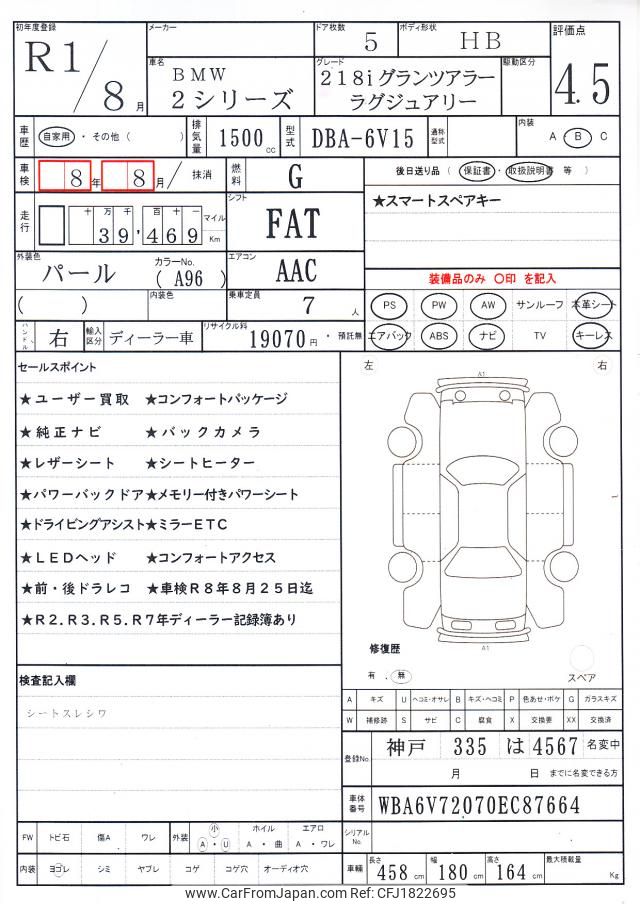 初年度登録 メーカー ドア枚数 ボディ形状 評価点
R1/8月 5 HB
車名 グレード 駆動区分
BMW 2シリーズ 218iグランツアラー ラグジュアリー 4.5
車歴 自家用 ・ その他 ( ) 排気量 1500cc 型式 DBA-6V15 通称型式 内装 A B C
車検 8年 8月 / 抹消 燃料 G 後日送り品 ( 保証書 ・ 取扱説明書 等 )
走行 十 万 千 百 十 一 マイル Km シフト
39,469 FAT ★スマートスペアキー
外装色 カラーNo. エアコン
パール ( A96 ) AAC
装備品のみ 〇印 を記入
( ) 内装色 乗車定員 7人 PS PW AW サンルーフ 本革シート
ハンドル 右 輸入区分 ディーラー車 リサイクル料 19070円 ・ 預託無 エアバック ABS ナビ TV キーレス
セールスポイント 左 右
★ユーザー買取 ★コンフォートパッケージ A1
★純正ナビ ★バックカメラ
★レザーシート ★シートヒーター
★パワーバックドア★メモリー付きパワーシート
★ドライビングアシスト★ミラーETC
★LEDヘッド ★コンフォートアクセス
★前・後ドラレコ ★車検R8年8月25日迄
★R2.R3.R5.R7年ディーラー記録簿あり
A1
修復歴
有 . 無 スペア
検査記入欄
A キズ U ヘコミ・オサレ B キズ・ヘコミ P 色あせ・ボケ G ガラスキズ
シートスレシワ W 補修跡 S サビ C 腐食 X 交換要 XX 交換済
登録No. 神戸 335 は 4567 名変中
月 日 までに名変できる方
車体番号 WBA6V72070EC87664
FW トビ石 傷A ワレ 外装 小 A ・ U ホイル A ・ 曲 エアロ A ・ ワレ シリアルNo.
内装 ヨゴレ シミ ヤブレ コゲ コゲ穴 オーディオ穴 車輛 長さ 458cm 幅 180cm 高さ 164cm 最大積載量 Kg
www.CarFromJapan.com Ref: CFJ1822695